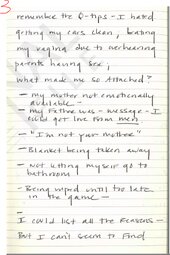 3
remember the Q-tips - I hated
getting my ears clean, beating
my vagina due to overhearing
parents having sex,
what made me so attached?
- my mother not emotionally
available -
- my father was - message - I
could get love from men.
- "I'm not your mother"
- Blanket being taken away
- not letting myself go to
bathroom
- Being until too late
in the game -
-
I could list all the reasons -
But I can't seem to find